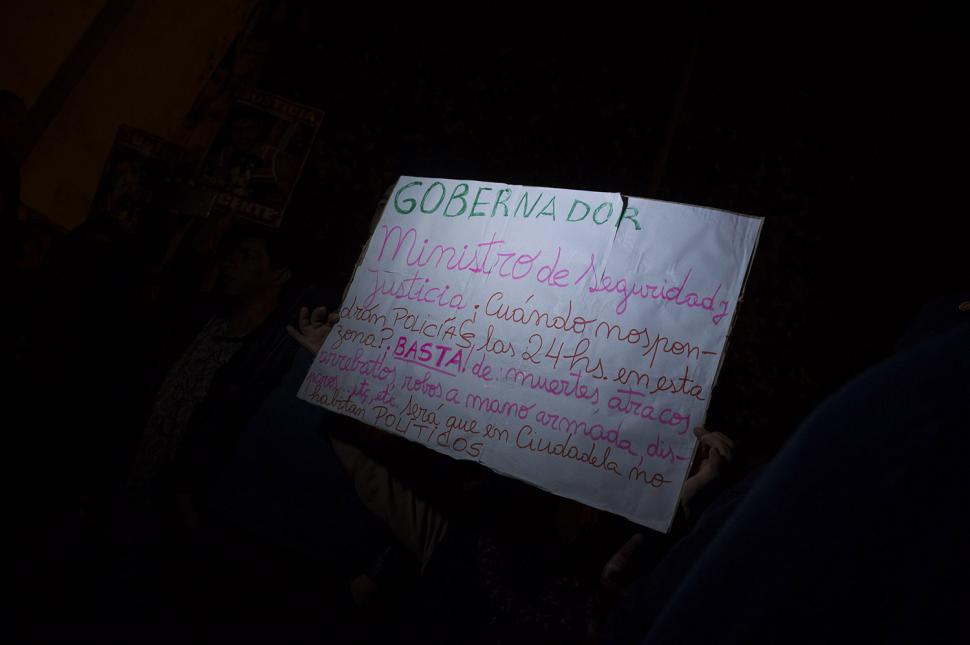 JUSTICIA
GENTE
GOBERNADOR
Ministro de Seguridad y
Justicia ¿Cuándo nos pon-
drán POLICÍAS las 24 hs. en esta
zona? BASTA! de: muertes, atracos,
arrebatos, robos a mano armada, dis-
paros.. etc, etc. Será que en Ciudadela no
habitan POLÍTICOS